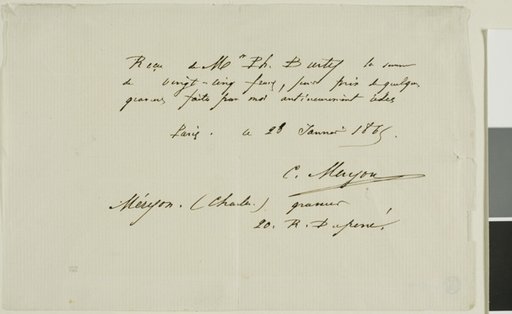 Reçu de Mr Ph. Burty la somme
de vingt-cinq francs, pour prix de quelques
gravures faites par moi antérieurement
Paris. le 28 Janvier 1865.
C. Meryon
Méryon. (Charles) graveur
20. R. Duperré